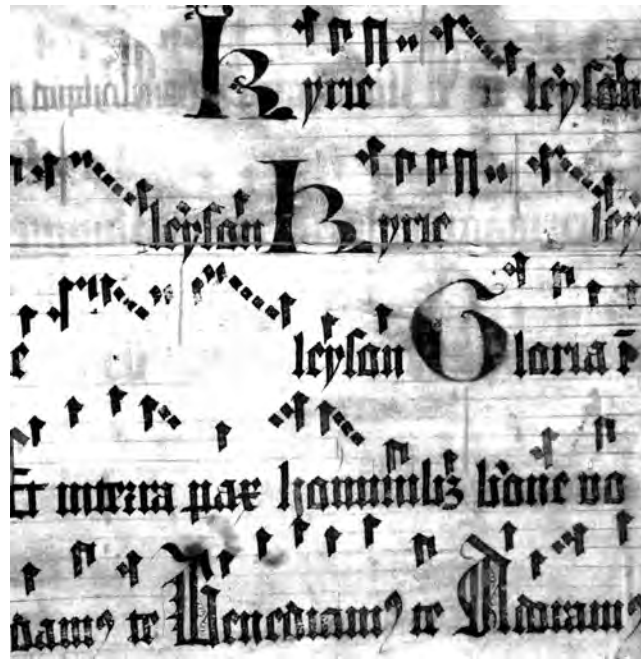 Kyrie leyson
leyson Kyrie ley
e leyson Gloria
Et in terra pax hominibꝫ bone vo
damꝰ te Benedicamꝰ te Adoramꝰ